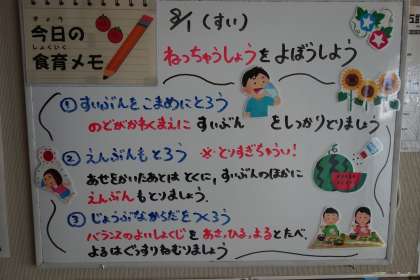 きょう
今日の
しょくいく
食育メモ
8/1 (すい)
ねっちゅうしょうをよぼうしよう
① すいぶんをこまめにとろう
のどがかわくまえに すいぶんをしっかりとりましょう
② えんぶんもとろう ※とりすぎちゅうい!
あせをかいたあとは とくに、すいぶんのほかに
えんぶんもとりましょう。
③ じょうぶなからだをつくろう
バランスのよいしょくじを あさ、ひる、よるとたべ、
よるはぐっすりねむりましょう